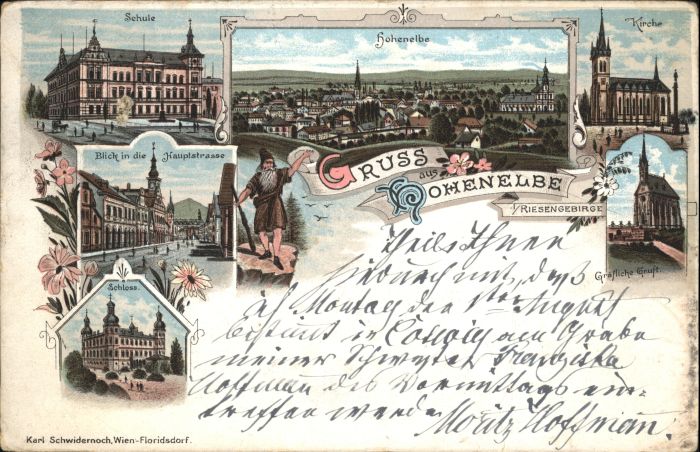 Schule
Hohenelbe
Kirche
Blick in die Hauptstrasse
GRUSS
aus
HOHENELBE
i/RIESENGEBIRGE
Gräfliche Gruft.
Schloss.
Theile Ihnen
hiedurch mit, daß
ich Montag den 1ten August
bestimmt in am Grabe
meiner Schwester Franziska
Hoffman des Vormittags ein-
treffen werde
Moritz Hoffman.
Karl Schwidernoch, Wien-Floridsdorf.